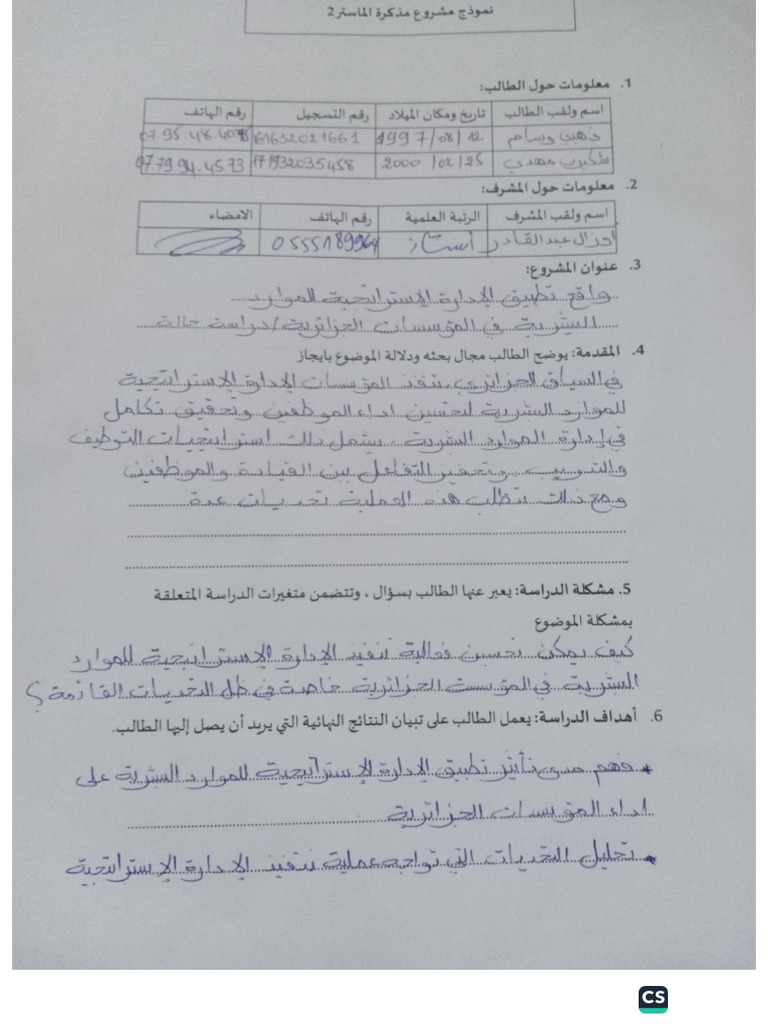 نموذج مشروع مذكرة الماستر2
1. معلومات حول الطالب:
اسم ولقب الطالب تاريخ ومكان الميلاد رقم التسجيل رقم الهاتف
ذهبي وسام 1997/08/12 161632021661 07.95.48.40
شكيرب مهدي 2000/02/25 171932035458 07.79.94.45.73
2. معلومات حول المشرف:
اسم ولقب المشرف الرتبة العلمية رقم الهاتف الامضاء
عبد القادر أستاذ 0555189964
3. عنوان المشروع:
واقع تطبيق الإدارة الإستراتيجية للموارد
البشرية في المؤسسات الجزائرية / دراسة حالة
4. المقدمة: يوضح الطالب مجال بحثه ودلالة الموضوع بايجاز
في السياق الجزائري، تنفذ المؤسسات الإدارة الإستراتيجية
للموارد البشرية لتحسين اداء الموظفين وتحقيق تكامل
في إدارة الموارد البشرية، يشمل ذلك استراتيجيات التوظيف
والتدريب، وتحفيز التفاعل بين القيادة والموظفين
ومع ذلك تتطلب هذه العملية تحديات عدة
5. مشكلة الدراسة: يعبر عنها الطالب بسؤال ، وتتضمن متغيرات الدراسة المتعلقة
بمشكلة الموضوع
كيف يمكن تحسين فعالية تنفيذ الإدارة الإستراتيجية للموارد
البشرية في المؤسست الجزائرية خاصة في ظل التحديات القائمة؟
6. أهداف الدراسة: يعمل الطالب على تبيان النتائج النهائية التي يريد أن يصل إليها الطالب.
* فهم مدى تأثير تطبيق الإدارة الإستراتيجية للموارد البشرية على
اداء المؤسسات الجزائرية
* تحليل التحديات التي تواجه عملية تنفيذ الإدارة الإستراتجية
CS